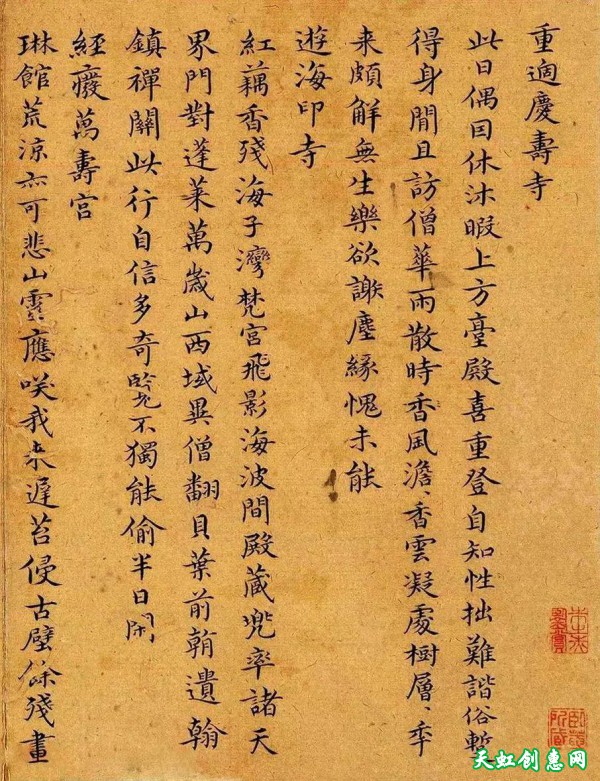 重適慶壽寺
此日偶因休沐暇上方臺殿喜重登自知性拙難諧俗暫
得身閒且訪僧華雨散時香風澹、香雲凝處樹層、秊
来頗解無生樂欲謝塵緣愧未能
遊海印寺
紅藕香殘海子灣梵宮飛影海波間殿藏兜率諸天
界門對蓬萊萬歲山西域異僧翻貝葉前朝遺翰
鎮禪關此行自信多奇覽不獨能偷半日閒
經廢萬壽宮
琳館荒涼亦可悲山靈應咲我来遲苔侵古壁餘殘畫
天虹创惠网